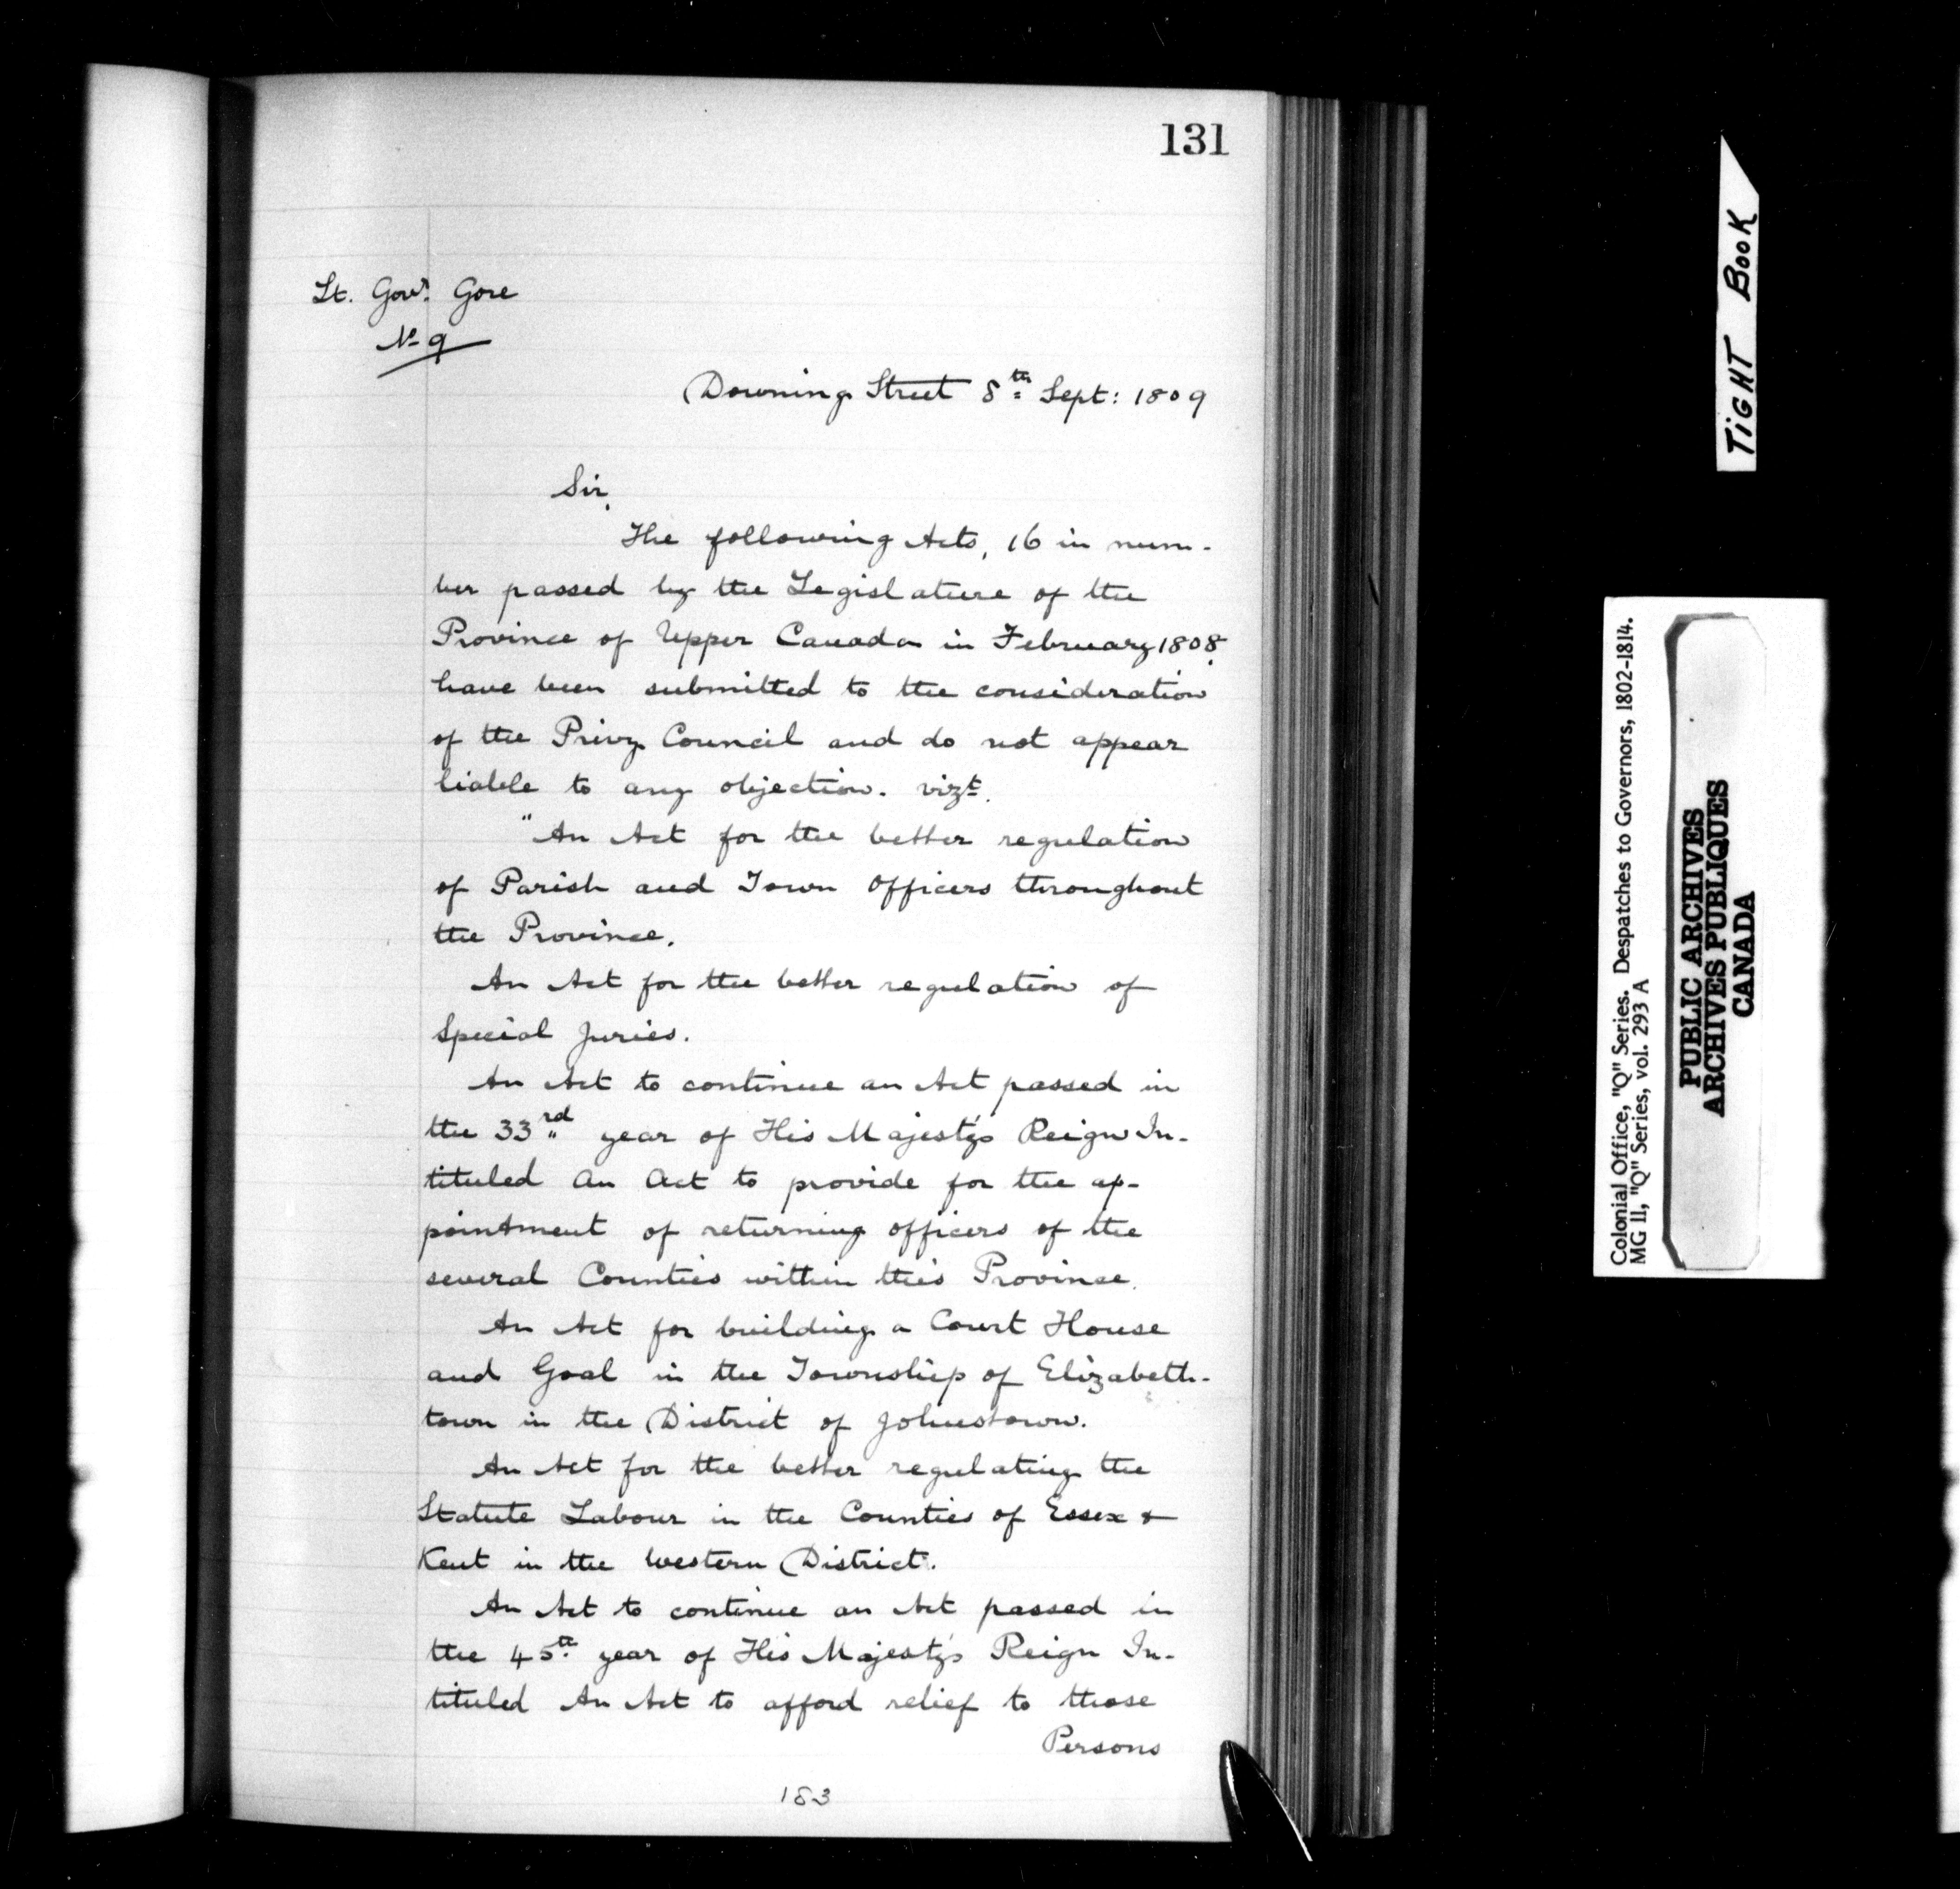 131
Lt. Govr. Gore
No 9
Downing Street 8th Sept: 1809
Sir,
The following Acts, 16 in num-
ber passed by the Legislature of the
Province of Upper Canada in February 1808,
have been submitted to the consideration
of the Privy Council and do not appear
liable to any objection. vizt.
"An Act for the better regulation
of Parish and Town Officers throughout
the Province.
An Act for the better regulation of
Special Juries.
An Act to continue an Act passed in
the 33rd year of His Majesty's Reign In-
tituled An Act to provide for the ap-
pointment of returning officers of the
several Counties within this Province.
An Act for building a Court House
and Goal in the Township of Elizabeth-
town in the District of Johnstown.
An Act for the better regulating the
Statute Labour in the Counties of Essex &
Kent in the Western District.
An Act to continue an Act passed in
the 45th year of His Majesty's Reign In-
tituled An Act to afford relief to those
Persons
183
TIGHT BOOK
Colonial Office, "Q" Series. Despatches to Governors, 1802-1814.
MG 11, "Q" Series, vol. 293 A
PUBLIC ARCHIVES
ARCHIVES PUBLIQUES
CANADA